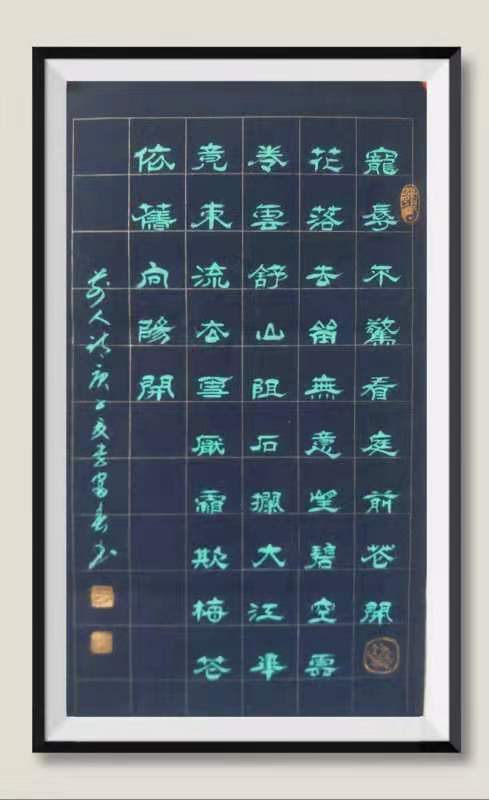 寵辱不驚看庭前花開
花落去留無意望碧空雲
卷雲舒山阻石攔大江畢
竟東流去雪厭霜欺梅花
依舊向陽開
前人詩庚子夏